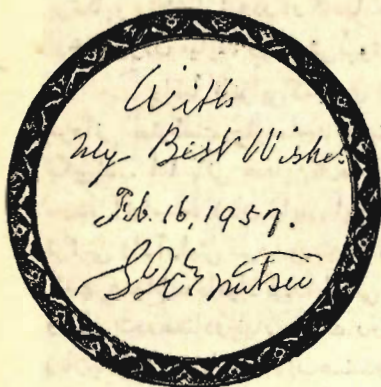 With
my Best Wishes
Feb. 16, 1957.